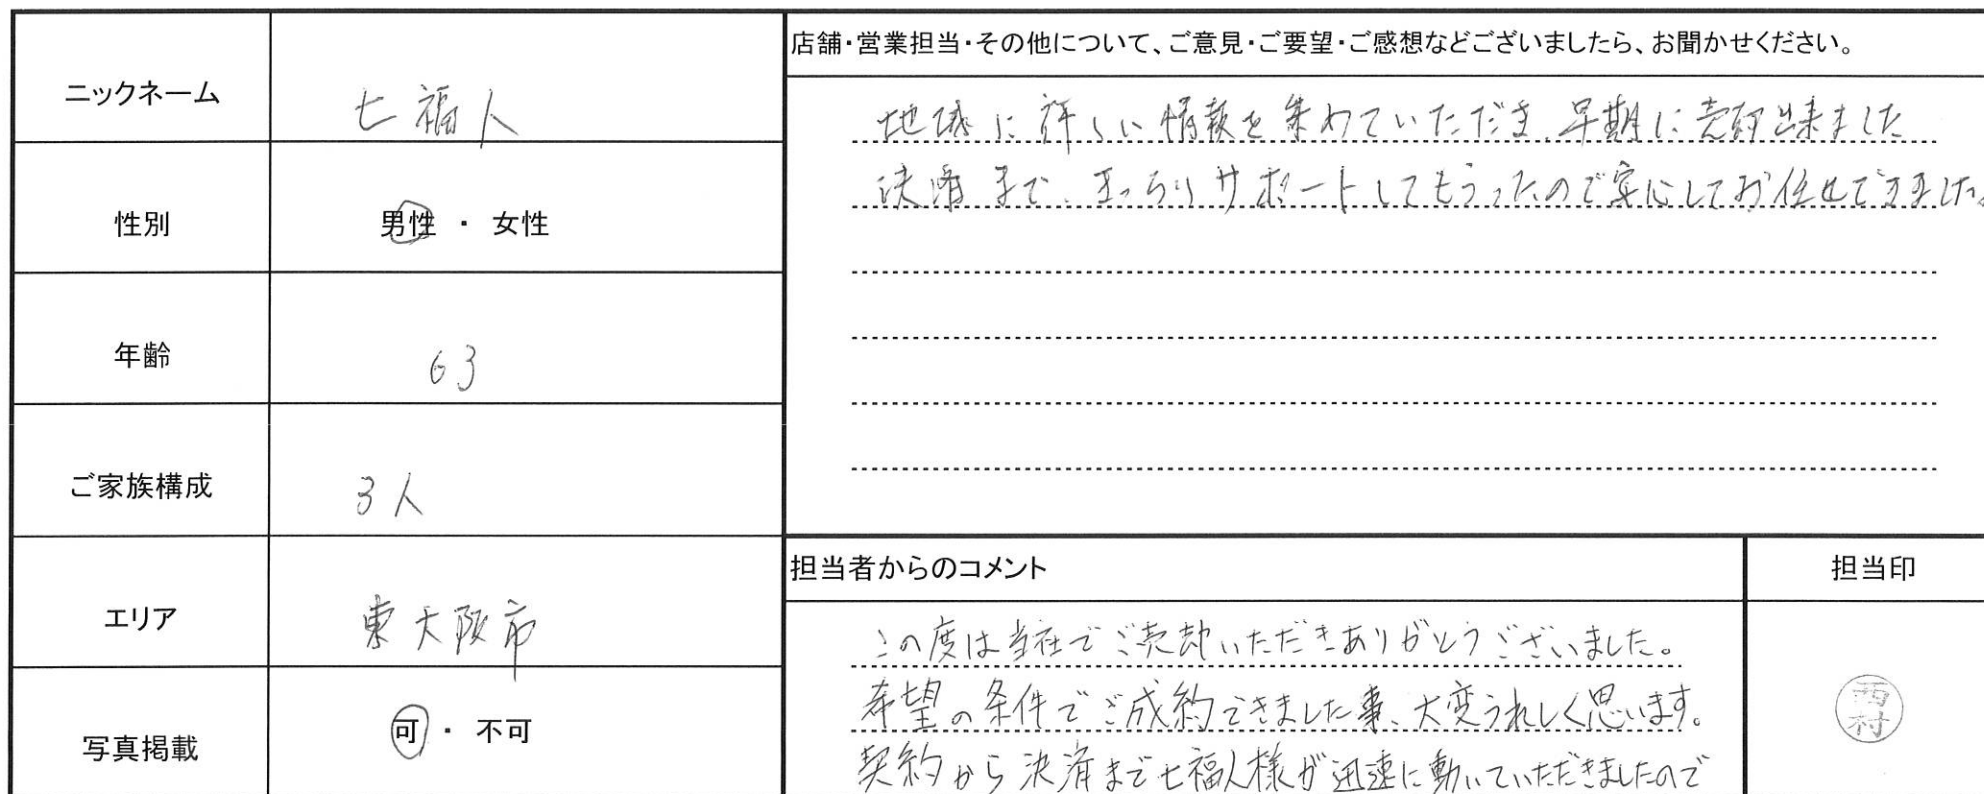 ニックネーム
七福人
性別
男性 ・ 女性
年齢
63
ご家族構成
3人
エリア
東大阪市
写真掲載
可 ・ 不可
店舗・営業担当・その他について、ご意見・ご要望・ご感想などございましたら、お聞かせください。
地域に詳しい情報を集めていただき、早期に売却出来ました
決済まで、きっちりサポートしてもらったので安心してお任せできました。
担当者からのコメント
この度は当社でご売却いただきありがとうございました。
希望の条件でご成約できました事、大変うれしく思います。
契約から決済まで七福人様が迅速に動いていただきましたので
担当印
西村